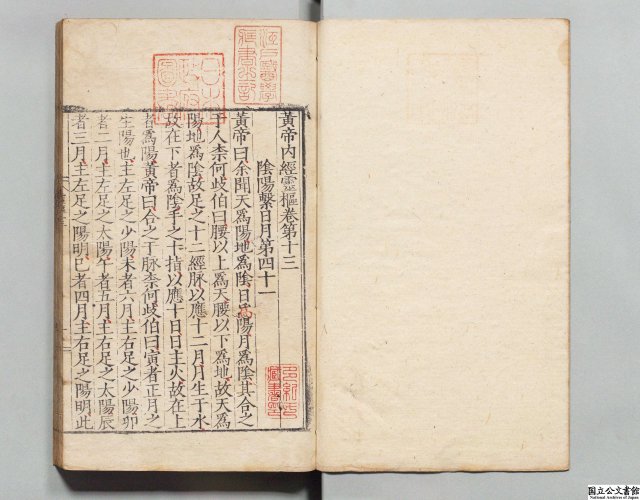 黃帝内經靈樞卷第十三
陰陽繫日月第四十一
黃帝曰余聞天爲陽地爲陰日爲陽月爲陰其合之
於人柰何歧伯曰腰以上爲天腰以下爲地故天爲
陽地爲陰故足之十二經脉以應十二月月生于水
故在下者爲陰手之十指以應十日日主火故在上
者爲陽黃帝曰合之于脉柰何歧伯曰寅者正月之
生陽也主左足之少陽未者六月主右足之少陽卯
者二月主左足之太陽午者五月主右足之太陽辰
者三月主左足之陽明巳者四月主右足之陽明此
江戸醫學
藏書之記
日本
政府
圖書
藏書印
国立公文書館
National Archives of Japan